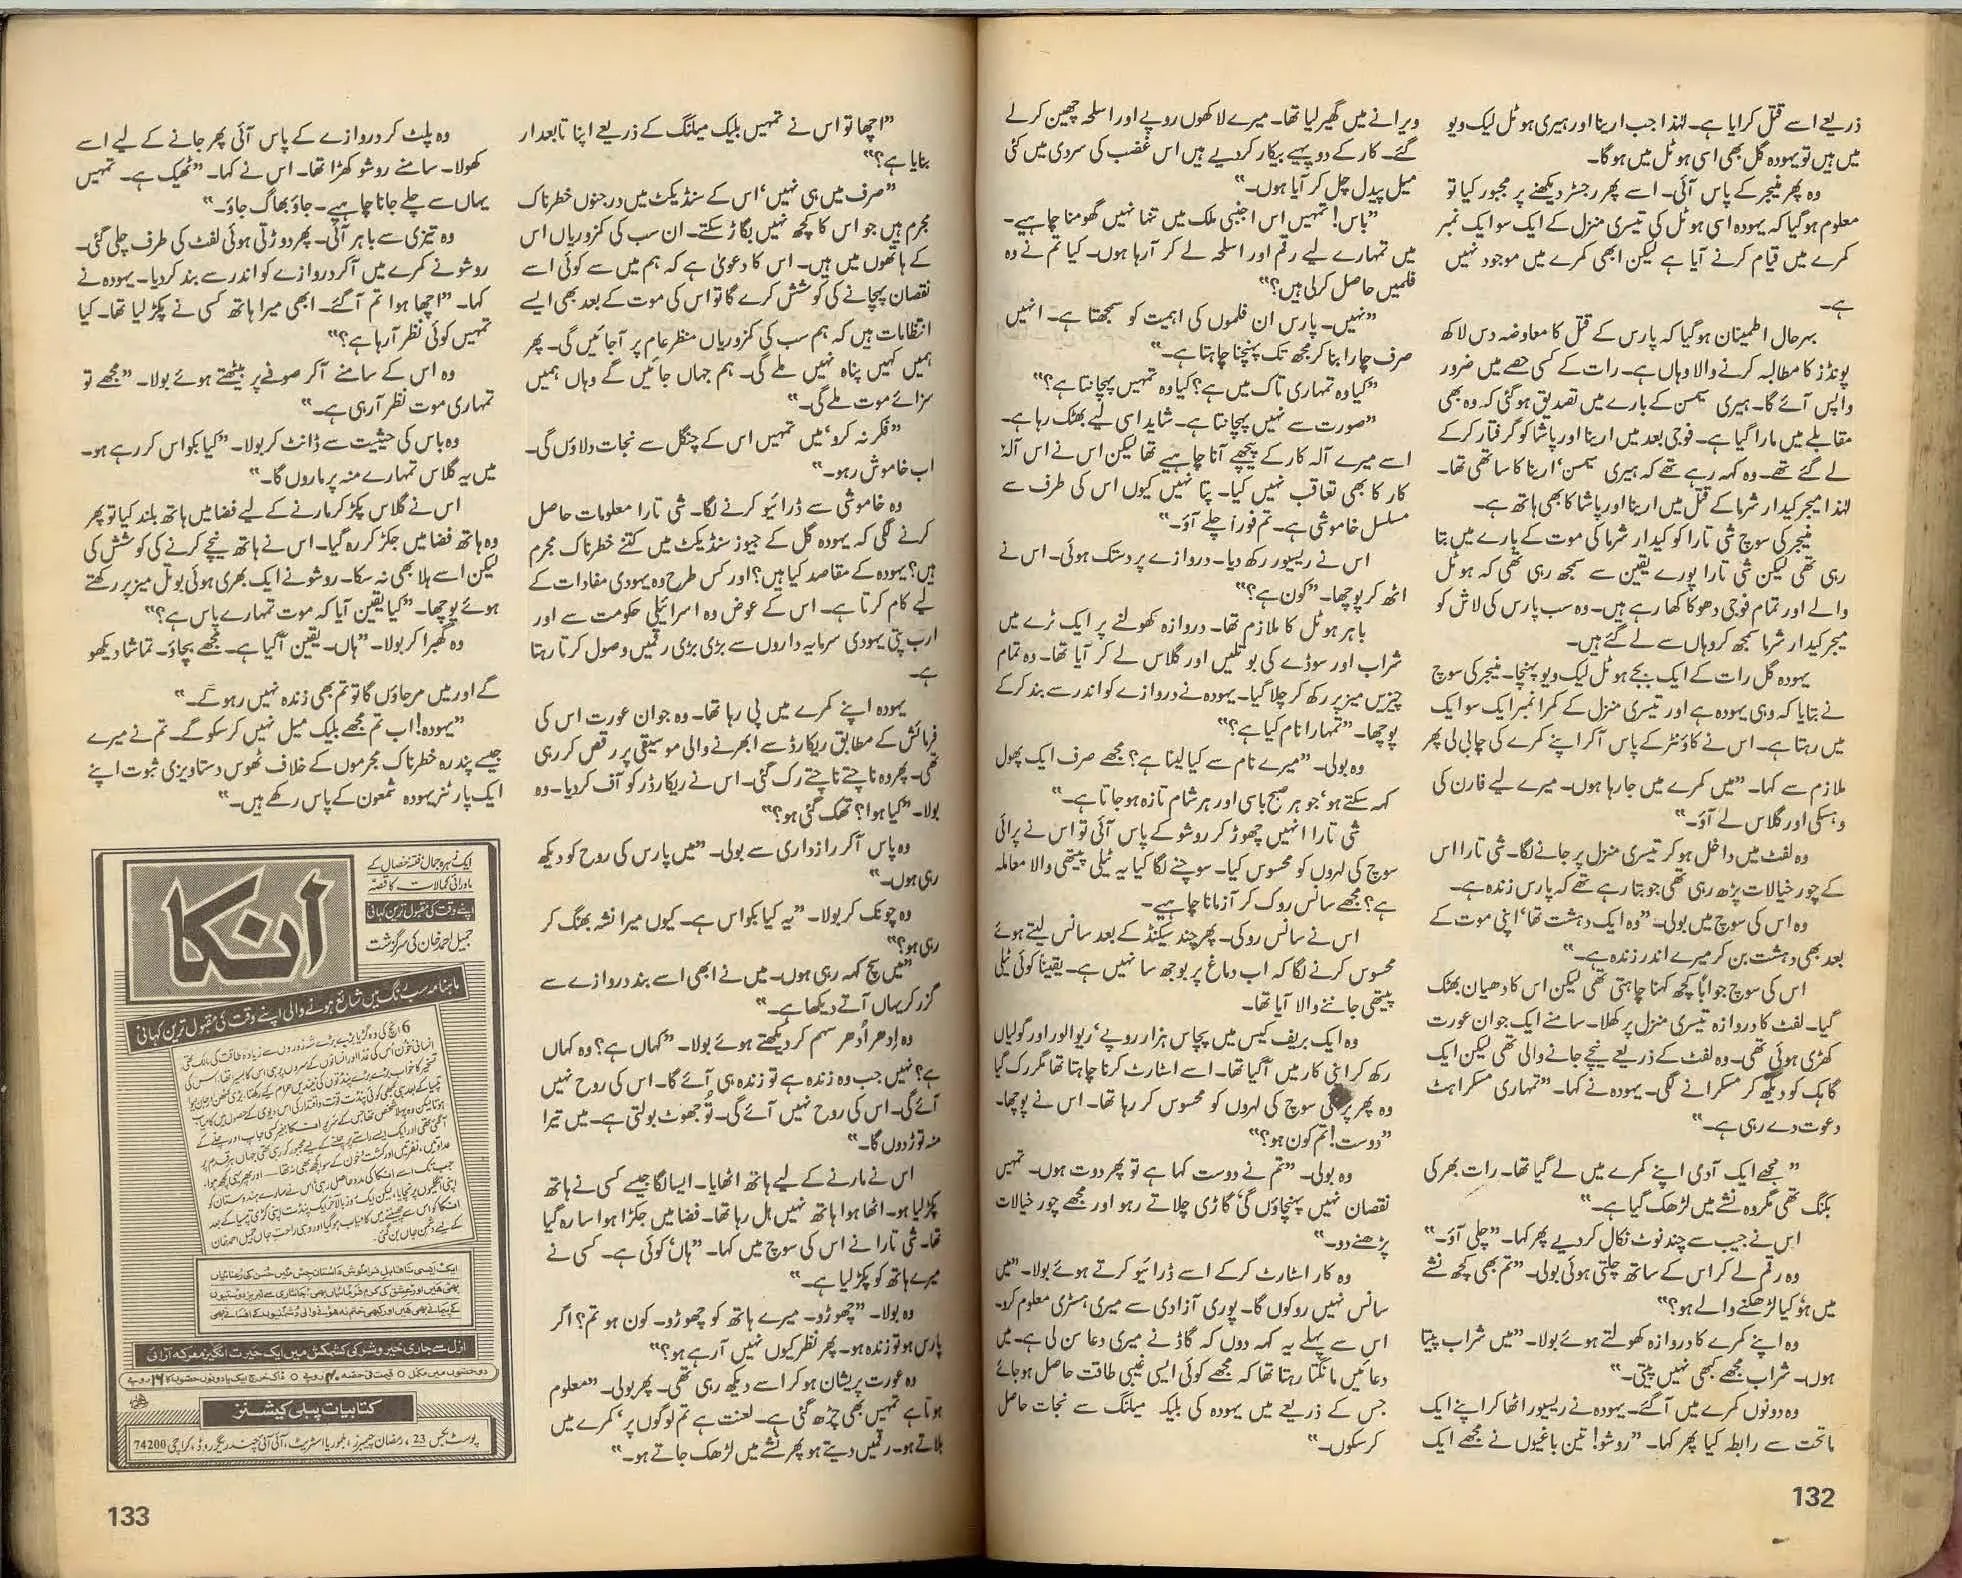 ذریعے اسے قتل کرایا ہے۔ لہٰذا جب ارینا اور ہیری ہوٹل لیک ویو
میں ہیں تو یہودہ گل بھی اسی ہوٹل میں ہو گا۔
وہ پھر منیجر کے پاس آئی۔ اسے پھر رجسٹر دیکھنے پر مجبور کیا تو
معلوم ہو گیا کہ یہودہ اسی ہوٹل کی تیسری منزل کے ایک سو ایک نمبر
کمرے میں قیام کرنے آیا ہے لیکن ابھی کمرے میں موجود نہیں
ہے۔
بہرحال اطمینان ہو گیا کہ پارس کے قتل کا معاوضہ دس لاکھ
پونڈز کا مطالبہ کرنے والا وہاں ہے۔ رات کے کسی حصے میں ضرور
واپس آئے گا۔ ہیری سیمسن کے بارے میں تصدیق ہو گئی کہ وہ بھی
مقابلے میں مارا گیا ہے۔ فوجی بعد میں ارینا اور پاشا کو گرفتار کر کے
لے گئے تھے۔ وہ کہہ رہے تھے کہ ہیری سیمسن‘ ارینا کا ساتھی تھا۔
لہٰذا میجر کیدار شرما کے قتل میں ارینا اور پاشا کا بھی ہاتھ ہے۔
منیجر کی سوچ شی تارا کو کیدار شرما کی موت کے بارے میں بتا
رہی تھی لیکن شی تارا پورے یقین سے سمجھ رہی تھی کہ ہوٹل
والے اور تمام فوجی دھوکا کھا رہے ہیں۔ وہ سب پارس کی لاش کو
میجر کیدار شرما سمجھ کر وہاں سے لے گئے ہیں۔
یہودہ گل رات کے ایک بجے ہوٹل لیک ویو پہنچا۔ منیجر کی سوچ
نے بتایا کہ وہی یہودہ ہے اور تیسری منزل کے کمرا نمبر ایک سو ایک
میں رہتا ہے۔ اس نے کاؤنٹر کے پاس آ کر اپنے کمرے کی چابی لی پھر
ملازم سے کہا۔ ”میں کمرے میں جا رہا ہوں۔ میرے لیے فارن کی
وہسکی اور گلاس لے آؤ۔“
وہ لفٹ میں داخل ہو کر تیسری منزل پر جانے لگا۔ شی تارا اس
کے چور خیالات پڑھ رہی تھی جو بتا رہے تھے کہ پارس زندہ ہے۔
وہ اس کی سوچ میں بولی۔ ”وہ ایک دہشت تھا‘ اپنی موت کے
بعد بھی دہشت بن کر میرے اندر زندہ ہے۔“
اس کی سوچ جواباً کچھ کہنا چاہتی تھی لیکن اس کا دھیان بھٹک
گیا۔ لفٹ کا دروازہ تیسری منزل پر کھلا۔ سامنے ایک جوان عورت
کھڑی ہوئی تھی۔ وہ لفٹ کے ذریعے نیچے جانے والی تھی لیکن ایک
گاہک کو دیکھ کر مسکرانے لگی۔ یہودہ نے کہا۔ ”تمہاری مسکراہٹ
دعوت دے رہی ہے۔“
”مجھے ایک آدمی اپنے کمرے میں لے گیا تھا۔ رات بھر کی
بکنگ تھی مگر وہ نشے میں لڑھک گیا ہے۔“
اس نے جیب سے چند نوٹ نکال کر دیے پھر کہا۔ ”چلی آؤ۔“
وہ رقم لے کر اس کے ساتھ چلتی ہوئی بولی۔ ”تم بھی کچھ نشے
میں ہو‘ کیا لڑھکنے والے ہو؟“
وہ اپنے کمرے کا دروازہ کھولتے ہوئے بولا۔ ”میں شراب پیتا
ہوں۔ شراب مجھے کبھی نہیں پیتی۔“
وہ دونوں کمرے میں آ گئے۔ یہودہ نے ریسیور اٹھا کر اپنے ایک
ماتحت سے رابطہ کیا پھر کہا۔ ”روشو! تین باغیوں نے مجھے ایک
ویرانے میں گھیر لیا تھا۔ میرے لاکھوں روپے اور اسلحہ چھین کر لے
گئے۔ کار کے دو پہیے بیکار کر دیے ہیں اس غضب کی سردی میں کئی
میل پیدل چل کر آیا ہوں۔“
”باس! تمہیں اس اجنبی ملک میں تنہا نہیں گھومنا چاہیے۔
میں تمہارے لیے رقم اور اسلحہ لے کر آ رہا ہوں۔ کیا تم نے وہ
فلمیں حاصل کر لی ہیں؟“
”نہیں۔ پارس ان فلموں کی اہمیت کو سمجھتا ہے۔ انہیں
صرف چارا بنا کر مجھ تک پہنچنا چاہتا ہے۔“
”کیا وہ تمہاری تاک میں ہے؟ کیا وہ تمہیں پہچانتا ہے؟“
”صورت سے نہیں پہچانتا ہے۔ شاید اسی لیے بھٹک رہا ہے۔
اسے میرے آلہ کار کے پیچھے آنا چاہیے تھا لیکن اس نے اس آلۂ
کار کا بھی تعاقب نہیں کیا۔ پتا نہیں کیوں اس کی طرف سے
مسلسل خاموشی ہے۔ تم فوراً چلے آؤ۔“
اس نے ریسیور رکھ دیا۔ دروازے پر دستک ہوئی۔ اس نے
اٹھ کر پوچھا۔ ”کون ہے؟“
باہر ہوٹل کا ملازم تھا۔ دروازہ کھولنے پر ایک ٹرے میں
شراب اور سوڈے کی بوتلیں اور گلاس لے کر آیا تھا۔ وہ تمام
چیزیں میز پر رکھ کر چلا گیا۔ یہودہ نے دروازے کو اندر سے بند کر کے
پوچھا۔ ”تمہارا نام کیا ہے؟“
وہ بولی۔ ”میرے نام سے کیا لینا ہے؟ مجھے صرف ایک پھول
کہہ سکتے ہو‘ جو ہر صبح باسی اور ہر شام تازہ ہو جاتا ہے۔“
شی تارا انہیں چھوڑ کر روشو کے پاس آئی تو اس نے پرائی
سوچ کی لہروں کو محسوس کیا۔ سوچنے لگا کیا یہ ٹیلی پیتھی والا معاملہ
ہے؟ مجھے سانس روک کر آزمانا چاہیے۔
اس نے سانس روکی۔ پھر چند سیکنڈ کے بعد سانس لیتے ہوئے
محسوس کرنے لگا کہ اب دماغ پر بوجھ سا نہیں ہے۔ یقیناً کوئی ٹیلی
پیتھی جاننے والا آیا تھا۔
وہ ایک بریف کیس میں پچاس ہزار روپے‘ ریوالور اور گولیاں
رکھ کر اپنی کار میں آ گیا تھا۔ اسے اسٹارٹ کرنا چاہتا تھا مگر رک گیا
وہ پھر پرائی سوچ کی لہروں کو محسوس کر رہا تھا۔ اس نے پوچھا۔
”دوست! تم کون ہو؟“
وہ بولی۔ ”تم نے دوست کہا ہے تو پھر دوست ہوں۔ تمہیں
نقصان نہیں پہنچاؤں گی‘ گاڑی چلاتے رہو اور مجھے چور خیالات
پڑھنے دو۔“
وہ کار اسٹارٹ کر کے اسے ڈرائیو کرتے ہوئے بولا۔ ”میں
سانس نہیں روکوں گا۔ پوری آزادی سے میری ہسٹری معلوم کرو۔
اس سے پہلے یہ کہہ دوں کہ گاڈ نے میری دعا سن لی ہے۔ میں
دعائیں مانگتا رہتا تھا کہ مجھے کوئی ایسی غیبی طاقت حاصل ہو جائے
جس کے ذریعے میں یہودہ کی بلیک میلنگ سے نجات حاصل
کر سکوں۔“
132
”اچھا تو اس نے تمہیں بلیک میلنگ کے ذریعے اپنا تابعدار
بنایا ہے؟“
”صرف میں ہی نہیں‘ اس کے سنڈیکٹ میں درجنوں خطرناک
مجرم ہیں جو اس کا کچھ نہیں بگاڑ سکتے۔ ان سب کی کمزوریاں اس
کے ہاتھوں میں ہیں۔ اس کا دعویٰ ہے کہ ہم میں سے کوئی اسے
نقصان پہچانے کی کوشش کرے گا تو اس کی موت کے بعد بھی ایسے
انتظامات ہیں کہ ہم سب کی کمزوریاں منظر عام پر آ جائیں گی۔ پھر
ہمیں کہیں پناہ نہیں ملے گی۔ ہم جہاں جائیں گے وہاں ہمیں
سزائے موت ملے گی۔“
”فکر نہ کرو‘ میں تمہیں اس کے چنگل سے نجات دلاؤں گی۔
اب خاموش رہو۔“
وہ خاموشی سے ڈرائیو کرنے لگا۔ شی تارا معلومات حاصل
کرنے لگی کہ یہودہ گل کے جیوز سنڈیکٹ میں کتنے خطرناک مجرم
ہیں؟ یہودہ کے مقاصد کیا ہیں؟ اور کس طرح وہ یہودی مفادات کے
لیے کام کرتا ہے۔ اس کے عوض وہ اسرائیلی حکومت سے اور
ارب پتی یہودی سرمایہ داروں سے بڑی بڑی رقمیں وصول کرتا رہتا
ہے۔
یہودہ اپنے کمرے میں پی رہا تھا۔ وہ جوان عورت اس کی
فرمائش کے مطابق ریکارڈ سے ابھرنے والی موسیقی پر رقص کر رہی
تھی۔ پھر وہ ناچتے ناچتے رک گئی۔ اس نے ریکارڈر کو آف کر دیا۔ وہ
بولا۔ ”کیا ہوا؟ تھک گئی ہو؟“
وہ پاس آ کر رازداری سے بولی۔ ”میں پارس کی روح کو دیکھ
رہی ہوں۔“
وہ چونک کر بولا۔ ”یہ کیا بکواس ہے۔ کیوں میرا نشہ بھنگ کر
رہی ہو؟“
”میں سچ کہہ رہی ہوں۔ میں نے ابھی اسے بند دروازے سے
گزر کر یہاں آتے دیکھا ہے۔“
وہ اِدھر اُدھر سہم کر دیکھتے ہوئے بولا۔ ”کہاں ہے؟ وہ کہاں
ہے؟ نہیں جب وہ زندہ ہے تو زندہ ہی آئے گا۔ اس کی روح نہیں
آئے گی۔ اس کی روح نہیں آئے گی۔ تُو جھوٹ بولتی ہے۔ میں تیرا
منہ توڑ دوں گا۔“
اس نے مارنے کے لیے ہاتھ اٹھایا۔ ایسا لگا جیسے کسی نے ہاتھ
پکڑ لیا ہو۔ اٹھا ہوا ہاتھ نہیں ہل رہا تھا۔ فضا میں جکڑا ہوا سا رہ گیا
تھا۔ شی تارا نے اس کی سوچ میں کہا۔ ”ہاں‘ کوئی ہے۔ کسی نے
میرے ہاتھ کو پکڑ لیا ہے۔“
وہ بولا۔ ”چھوڑو۔ میرے ہاتھ کو چھوڑو۔ کون ہو تم؟ اگر
پارس ہو تو زندہ ہو۔ پھر نظر کیوں نہیں آ رہے ہو؟“
وہ عورت پریشان ہو کر اسے دیکھ رہی تھی۔ پھر بولی۔ ”معلوم
ہوتا ہے تمہیں بھی چڑھ گئی ہے۔ لعنت ہے تم لوگوں پر‘ کمرے میں
بلاتے ہو۔ رقمیں دیتے ہو پھر نشے میں لڑھک جاتے ہو۔“
وہ پلٹ کر دروازے کے پاس آئی پھر جانے کے لیے اسے
کھولا۔ سامنے روشو کھڑا تھا۔ اس نے کہا۔ ”ٹھیک ہے۔ تمہیں
یہاں سے چلے جانا چاہیے۔ جاؤ بھاگ جاؤ۔“
وہ تیزی سے باہر آئی۔ پھر دوڑتی ہوئی لفٹ کی طرف چلی گئی۔
روشو نے کمرے میں آ کر دروازے کو اندر سے بند کر دیا۔ یہودہ نے
کہا۔ ”اچھا ہوا تم آ گئے۔ ابھی میرا ہاتھ کسی نے پکڑ لیا تھا۔ کیا
تمہیں کوئی نظر آ رہا ہے؟“
وہ اس کے سامنے آ کر صوفے پر بیٹھتے ہوئے بولا۔ ”مجھے تو
تمہاری موت نظر آ رہی ہے۔“
وہ باس کی حیثیت سے ڈانٹ کر بولا۔ ”کیا بکواس کر رہے ہو۔
میں یہ گلاس تمہارے منہ پر ماروں گا۔“
اس نے گلاس پکڑ کر مارنے کے لیے فضا میں ہاتھ بلند کیا تو پھر
وہ ہاتھ فضا میں جکڑ کر رہ گیا۔ اس نے ہاتھ نیچے کرنے کی کوشش کی
لیکن اسے ہلا بھی نہ سکا۔ روشو نے ایک بھری ہوئی بوتل میز پر رکھتے
ہوئے پوچھا۔ ”کیا یقین آیا کہ موت تمہارے پاس ہے؟“
وہ گھبرا کر بولا۔ ”ہاں۔ یقین آ گیا ہے۔ مجھے بچاؤ۔ تماشا دیکھو
گے اور میں مر جاؤں گا تو تم بھی زندہ نہیں رہو گے۔“
”یہودہ! اب تم مجھے بلیک میل نہیں کر سکو گے۔ تم نے میرے
جیسے پندرہ خطرناک مجرموں کے خلاف ٹھوس دستاویزی ثبوت اپنے
ایک پارٹنر یہودہ شمعون کے پاس رکھے ہیں۔“
ایک زہرہ جمال فتنہ خصال کے
ماورائی کمالات کا قصّہ
اپنے وقت کی مقبول ترین کہانی
جمیل احمد خان کی سرگزشت
انکا
ماہنامہ سب رنگ میں شائع ہونے والی اپنے وقت کی مقبول ترین کہانی
ازل سے جاری خیر و شر کی کشمکش میں ایک حیرت انگیز معرکہ آرائی
کتابیات پبلی کیشنز
پوسٹ بکس 23، رمضان چیمبرز، بلموریا اسٹریٹ، آئی آئی چندریگر روڈ، کراچی 74200
133